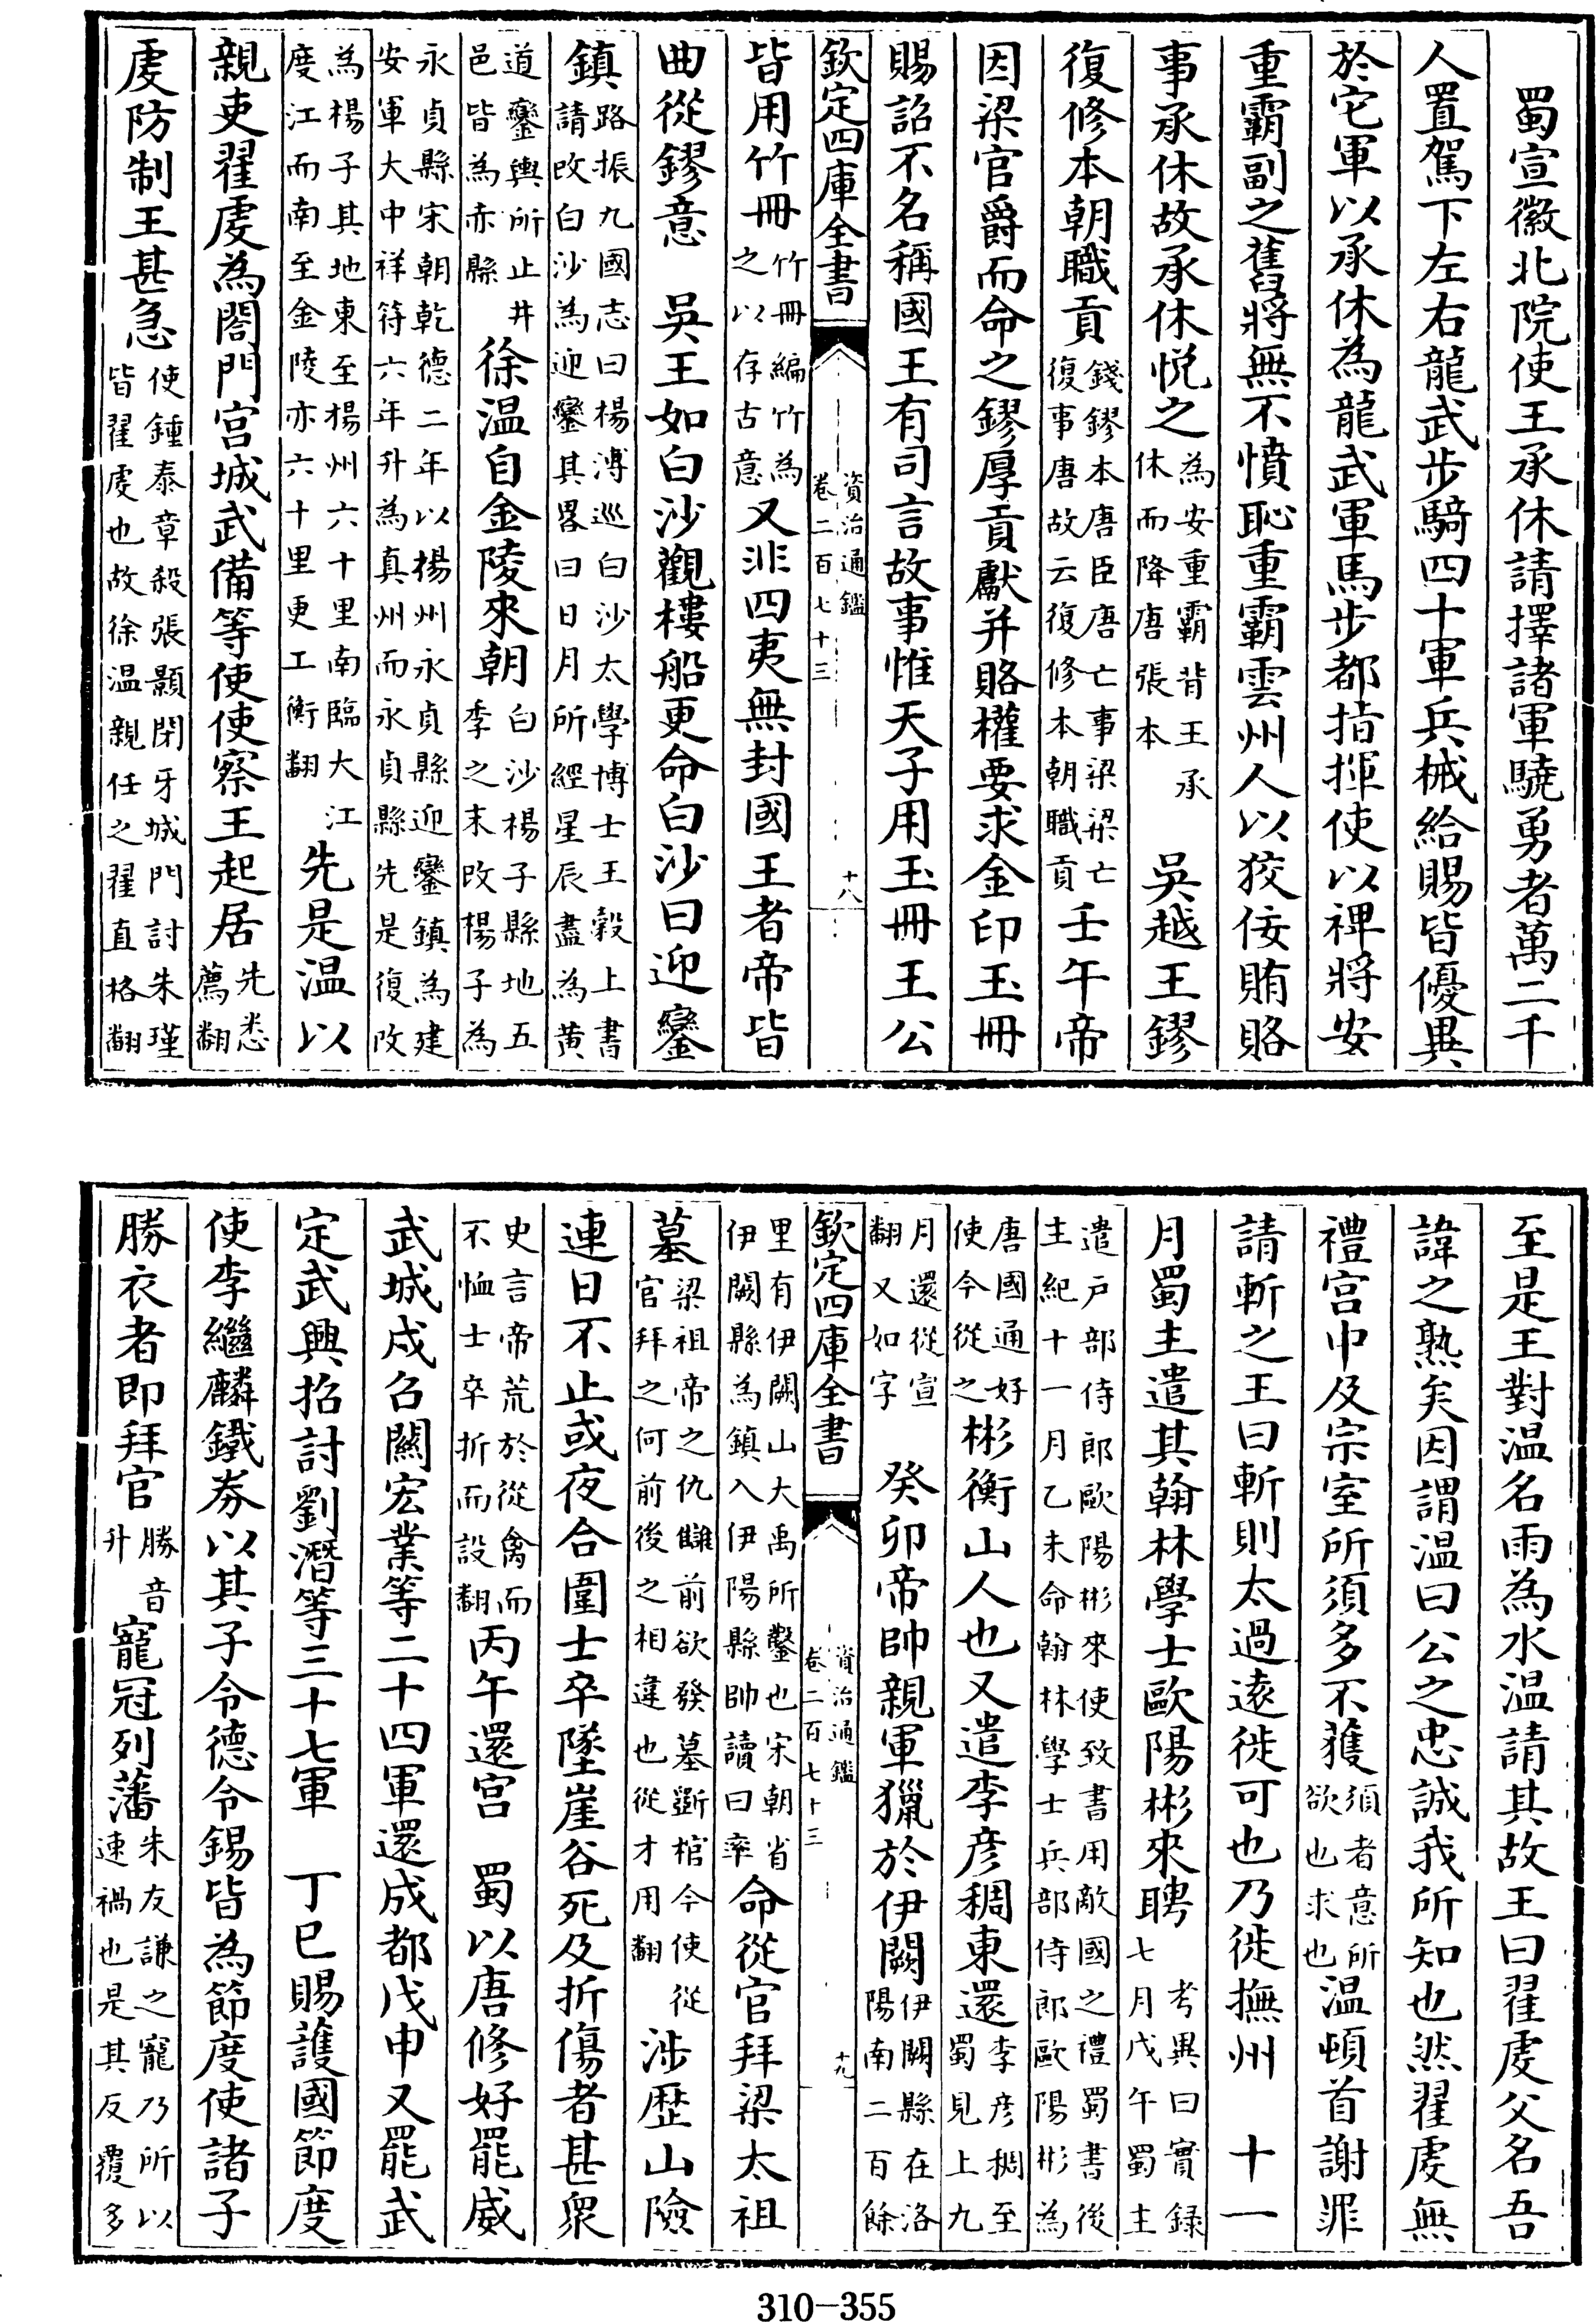 蜀宣徽北院使王承休請擇諸軍驍勇者萬二千
人置駕下左右龍武步騎四十軍兵械給賜皆優異
於它軍以承休為龍武軍馬步都指揮使以禆將安
重霸副之舊將無不憤恥重霸雲州人以狡佞賄賂
事承休故承休悦之為安重霸背王承休而降唐張本　吳越王鏐
復修本朝職貢錢鏐本唐臣唐亡事梁梁亡復事唐故云復修本朝職貢壬午帝
因梁官爵而命之鏐厚貢獻并賂權要求金印玉冊
賜詔不名稱國王有司言故事惟天子用玉冊王公
欽定四庫全書　資治通鑑卷二百七十三　十八
皆用竹冊竹冊編竹為之以存古意又非四夷無封國王者帝皆
曲從鏐意　吳王如白沙觀樓船更命白沙曰迎鑾
鎮路振九國志曰楊溥巡白沙太學博士王穀上書請改白沙為迎鑾其畧曰日月所經星辰盡為黄
道鑾輿所止井邑皆為赤縣徐温自金陵來朝白沙楊子縣地五季之末改楊子為
永貞縣宋朝乾德二年以揚州永貞縣迎鑾鎮為建安軍大中祥符六年升為真州而永貞縣先是復改
為楊子其地東至楊州六十里南臨大江度江而南至金陵亦六十里更工衡翻先是温以
親吏翟䖍為閤門宫城武備等使使察王起居先悉薦翻
䖍防制王甚急使鍾泰章殺張顥閉牙城門討朱瑾皆翟䖍也故徐温親任之翟直格翻
至是王對温名雨為水温請其故王曰翟䖍父名吾
諱之熟矣因謂温曰公之忠誠我所知也然翟䖍無
禮宫中及宗室所須多不獲須者意所欲也求也温頓首謝罪
請斬之王曰斬則太過遠徙可也乃徙撫州　十一
月蜀主遣其翰林學士歐陽彬來聘考異曰實録七月戊午蜀主
遣戶部侍郎歐陽彬來使致書用敵國之禮蜀書後主紀十一月乙未命翰林學士兵部侍郎歐陽彬為
唐國通好使今從之彬衡山人也又遣李彦稠東還李彦稠至蜀見上九
月還從宣翻又如字　癸卯帝帥親軍獵於伊闕伊闕縣在洛陽南二百餘
欽定四庫全書　資治通鑑卷二百七十三　十九
里有伊闕山大禹所鑿也宋朝省伊闕縣為鎮入伊陽縣帥讀曰率命從官拜梁太祖
墓梁祖帝之仇讎前欲發墓斵棺今使從官拜之何前後之相違也從才用翻涉歴山險
連日不止或夜合圍士卒墜崖谷死及折傷者甚衆
史言帝荒於從禽而不恤士卒折而設翻丙午還宫　蜀以唐修好罷威
武城戍召關宏業等二十四軍還成都戊申又罷武
定武興招討劉潛等三十七軍　丁巳賜護國節度
使李繼麟鐵劵以其子令德令錫皆為節度使諸子
勝衣者即拜官勝音升寵冠列藩朱友謙之寵乃所以速禍也是其反覆多
310—355